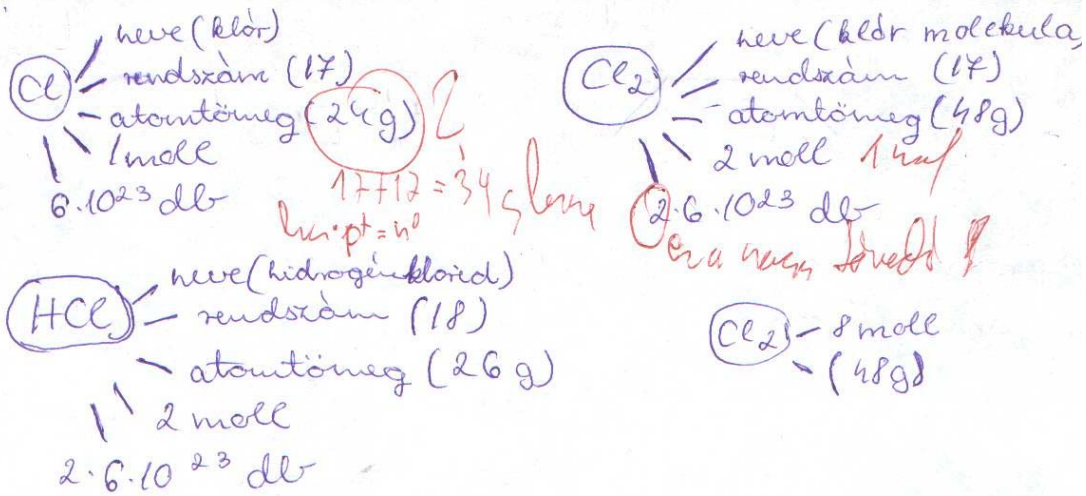 Cl
neve (klór)
rendszám (17)
atomtömeg (24g) ?
1 moll
6·10²³ db
17+17 = 34 g lenne
ha p⁺ = n⁰
Cl₂
neve (klór molekula)
rendszám (17)
atomtömeg (48g)
2 moll 1 mol
2·6·10²³ db
ez a nem
HCl
neve (hidrogénklorid)
rendszám (18)
atomtömeg (26 g)
2 moll
2·6·10²³ db
Cl₂
8 moll
(48g)